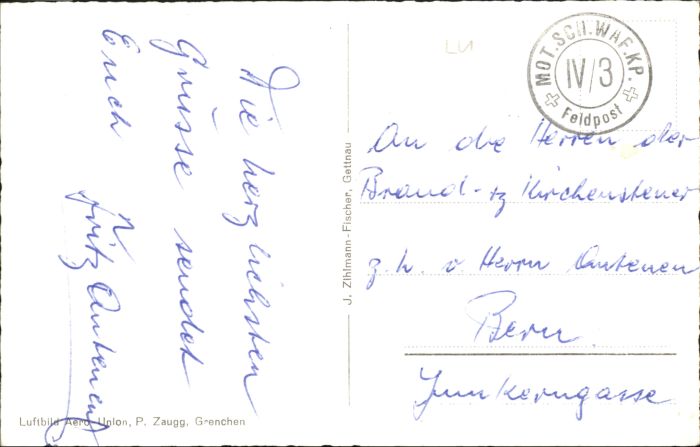 Die herzlichsten
Grüsse sendet
Euch
Fritz Antenen
LU
MOT.SCH.WAF.KP.
IV/3
Feldpost
An die Herren der
Brand- Kirchensteuer
z.h. v Herrn Antenen
Bern
Junkerngasse
J. Zihlmann-Fischer, Gettnau
Luftbild Aero-Union, P. Zaugg, Grenchen